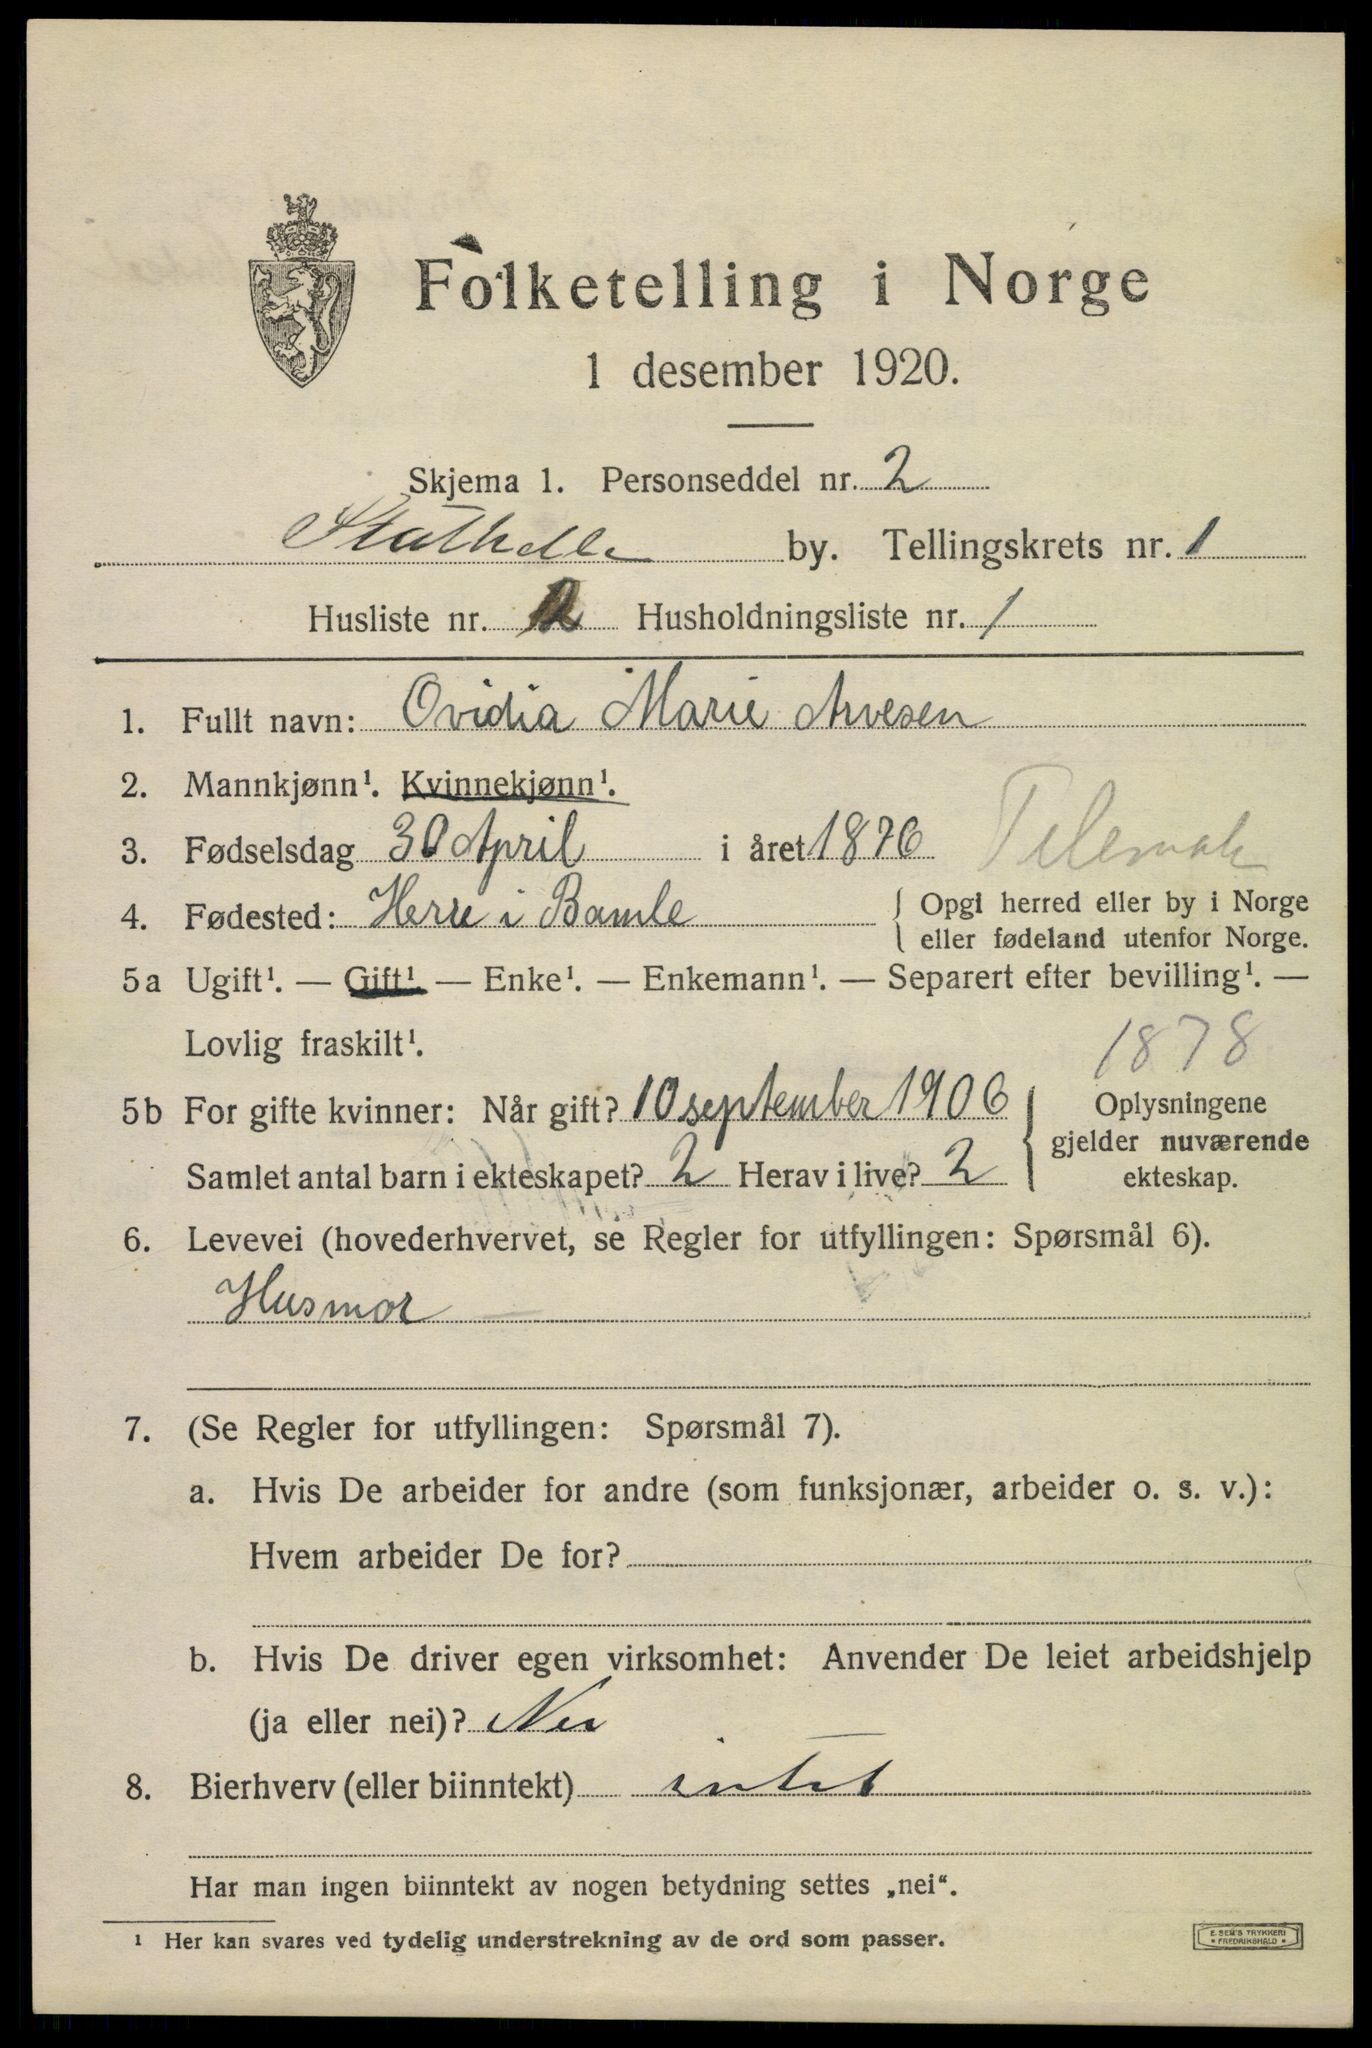 Folketelling i Norge
1 desember 1920.
Skjema 1. Personseddel nr. 2
Stathelle by. Tellingskrets nr. 1
Husliste nr. 2 Husholdningsliste nr. 1
1. Fullt navn: Ovidia Marie Arvesen
2. Mannkjønn¹. Kvinnekjønn¹.
3. Fødselsdag 30 April i året 1876 Telemark
4. Fødested: Herre i Bamle { Opgi herred eller by i Norge
eller fødeland utenfor Norge.
5a Ugift¹. — Gift¹. — Enke¹. — Enkemann¹. — Separert efter bevilling¹. —
Lovlig fraskilt¹.
1878
5b For gifte kvinner: Når gift? 10 september 1906 { Oplysningene
gjelder nuværende
ekteskap.
Samlet antal barn i ekteskapet? 2 Herav i live? 2
6. Levevei (hovederhvervet, se Regler for utfyllingen: Spørsmål 6).
Husmor
7. (Se Regler for utfyllingen: Spørsmål 7).
a. Hvis De arbeider for andre (som funksjonær, arbeider o. s. v.):
Hvem arbeider De for?
b. Hvis De driver egen virksomhet: Anvender De leiet arbeidshjelp
(ja eller nei)? Nei
8. Bierhverv (eller biinntekt) intet
Har man ingen biinntekt av nogen betydning settes „nei“.
¹ Her kan svares ved tydelig understrekning av de ord som passer.
E. SEM'S TRYKKERI
* FREDRIKSHALD *